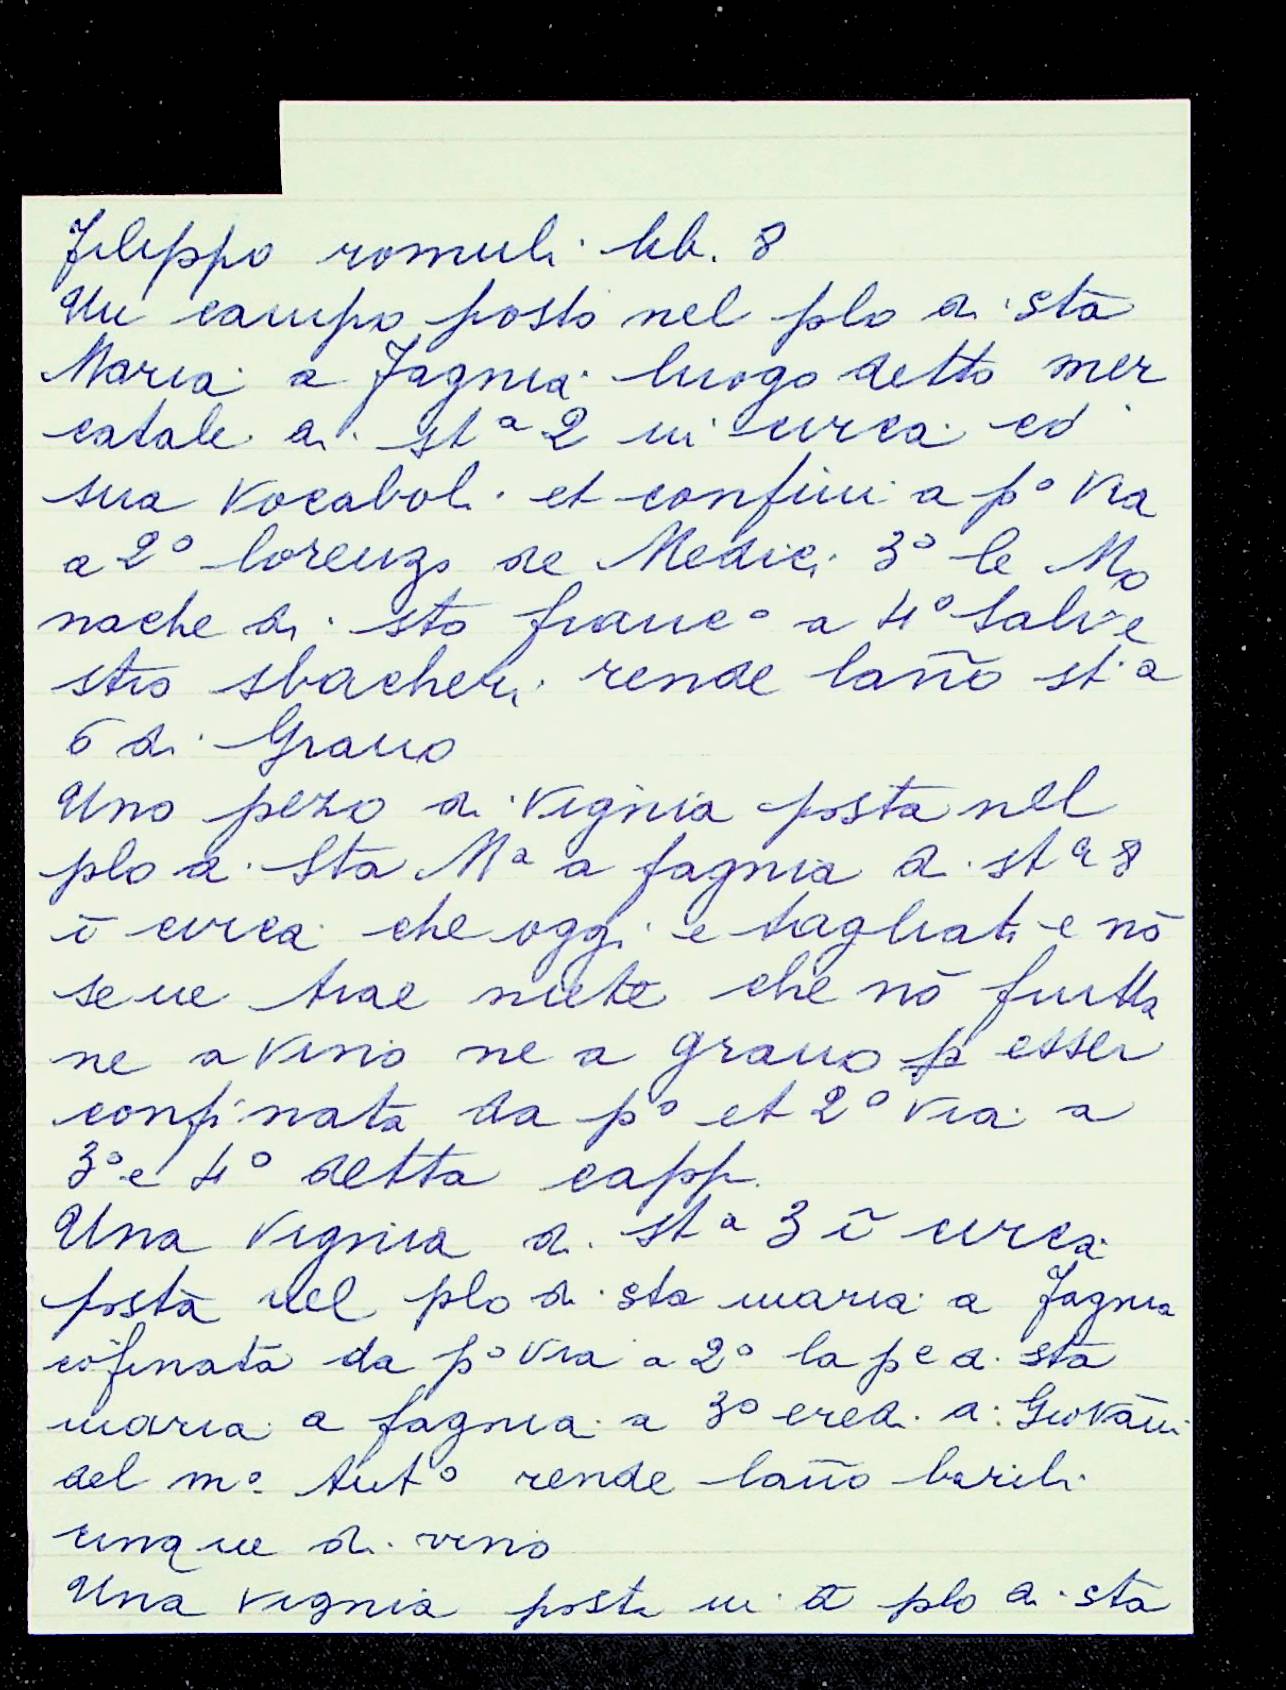 Filippo romuli lib. 8
Un campo posto nel plo di sta
Maria a Fagnia luogo detto mer
catale di stª 2 in circa cō
sua vocaboli et confini a pº via
a 2º lorenzo de Medici 3º le Mo
nache di sto francº a 4º Salve
stro sbacheri rende lan̄o stª
6 di Grano
Uno pezo di vignia posta nel
plo di Sta Mª a fagnia di stª 8
ī circa che oggi e tagliati e nō
se ne trae niete che nō frutta
ne a vino ne a grano p esser
confinata da pº et 2º via a
3º e 4º detta capp.
Una vignia di stª 3 ī circa
posta nel plo di sta maria a Fagnia
cōfinata da pº via a 2º la pe di sta
maria a fagnia a 3º eredi di Giovāni
del mº Antº rende lan̄o barili
cinque di vino
Una vignia posta in d plo di sta